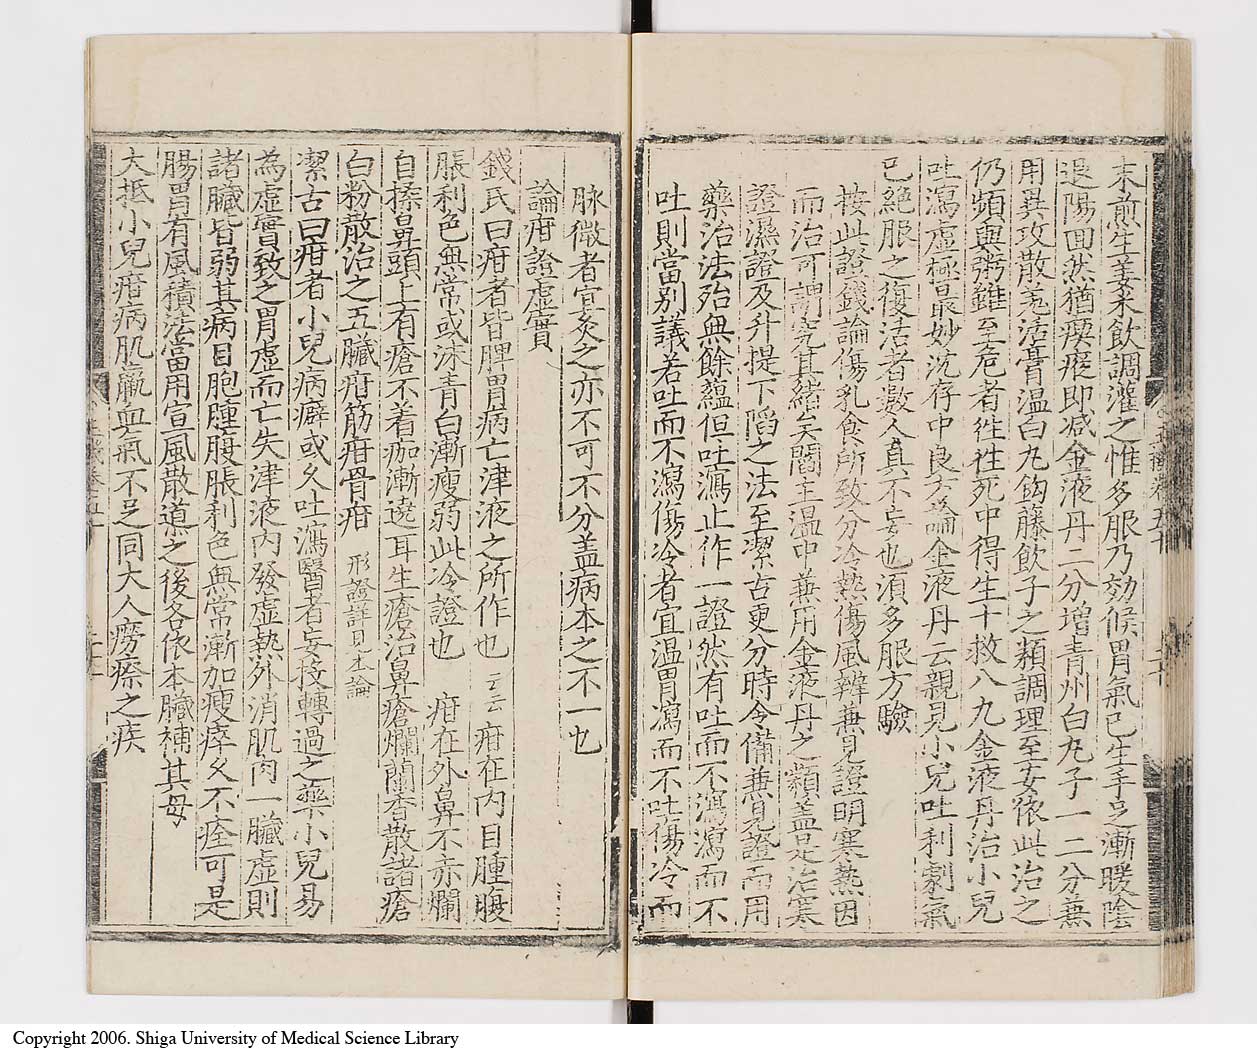 末煎生姜米飲調灌之惟多服乃効候胃氣已生手足漸暖陰
退陽囬然猶瘈瘲即减金液丹二分增青州白丸子一二分兼
用異攻散羗活膏温白丸鈎藤飲子之類調理至安依此治之
仍頻與粥雖至危者徃徃死中得生十救八九金液丹治小兒
吐瀉虚極最妙沈存中良方論金液丹云親見小兒吐利劇氣
已絶服之復活者數人真不妄也須多服方驗
按此證錢論傷乳食所致分冷熱傷風辨兼見證明寒熱因
而治可謂究其緒矣閻主温中兼用金液丹之類盖是治寒
證濕證及升提下陷之法至潔古更分時令備兼見證而用
藥治法殆無餘蘊但吐瀉止作一證然有吐而不瀉瀉而不
吐則當别議若吐而不瀉傷冷者宜温胃瀉而不吐傷冷而
脉微者宜灸之亦不可不分盖病本之不一也
論疳證虚實
錢氏曰疳者皆脾胃病亡津液之所作也 云云 疳在内目腫腹
脹利色無常或沫青白漸瘦弱此冷證也 疳在外鼻下赤爛
自揉鼻頭上有瘡不着痂漸遶耳生瘡治鼻瘡爛蘭香散諸瘡
白粉散治之五臟疳筋疳骨疳 形證詳見本論
潔古曰疳者小兒病癖或久吐瀉醫者妄投轉過之藥小兒易
為虚實致之胃虚而亡失津液内發虚熱外消肌肉一臟虚則
諸臟皆弱其病目胞腫腹脹利色無常漸加瘦瘁久不痊可是
腸胃有風積法當用宣風散導之後各依本臟補其母
大抵小兒疳病肌羸血氣不足同大人癆瘵之疾